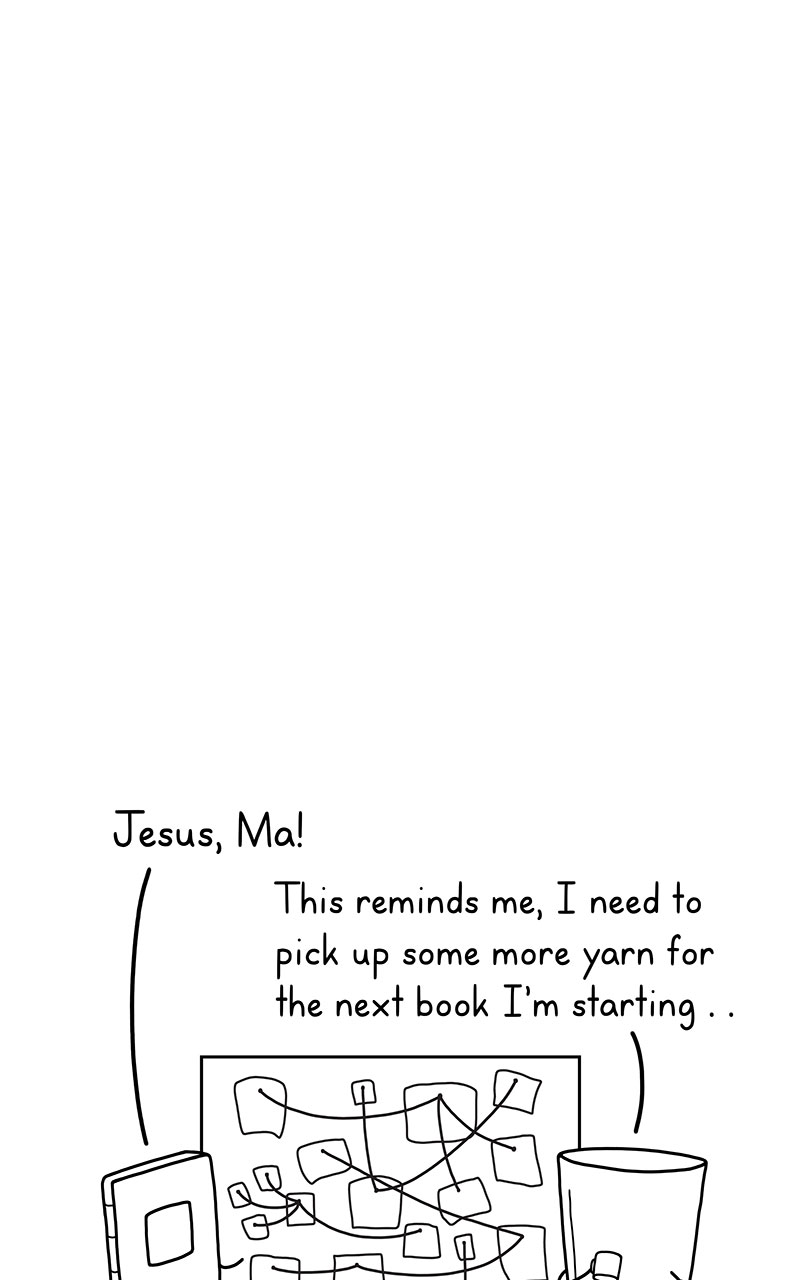 Jesus, Ma!
This reminds me, I need to
pick up some more yarn for
the next book I'm starting . .